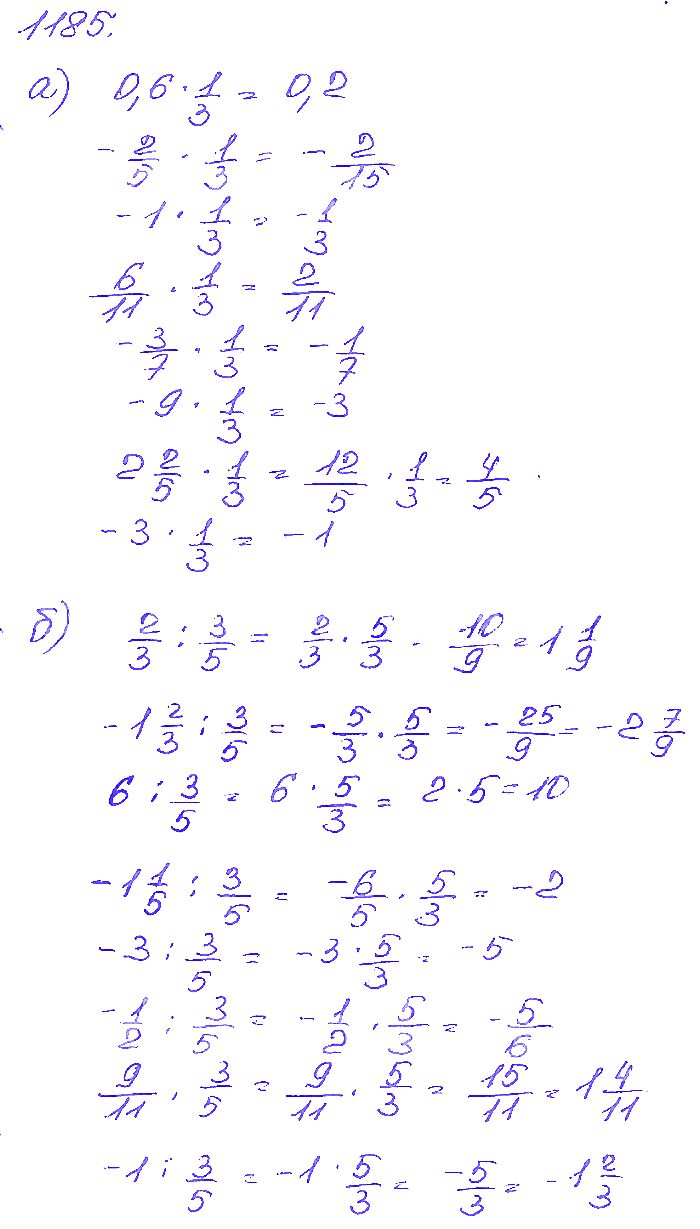 1185.
а) 0,6 · 1/3 = 0,2
- 2/5 · 1/3 = - 2/15
-1 · 1/3 = - 1/3
6/11 · 1/3 = 2/11
- 3/7 · 1/3 = - 1/7
-9 · 1/3 = -3
2 2/5 · 1/3 = 12/5 · 1/3 = 4/5
-3 · 1/3 = -1
б) 2/3 : 3/5 = 2/3 · 5/3 - 10/9 = 1 1/9
-1 2/3 : 3/5 = - 5/3 · 5/3 = - 25/9 = -2 7/9
6 : 3/5 = 6 · 5/3 = 2 · 5 = 10
-1 1/5 : 3/5 = -6/5 · 5/3 = -2
-3 : 3/5 = -3 · 5/3 = -5
- 1/2 : 3/5 = - 1/2 · 5/3 = - 5/6
9/11 · 3/5 = 9/11 · 5/3 = 15/11 = 1 4/11
-1 : 3/5 = -1 · 5/3 = -5/3 = -1 2/3